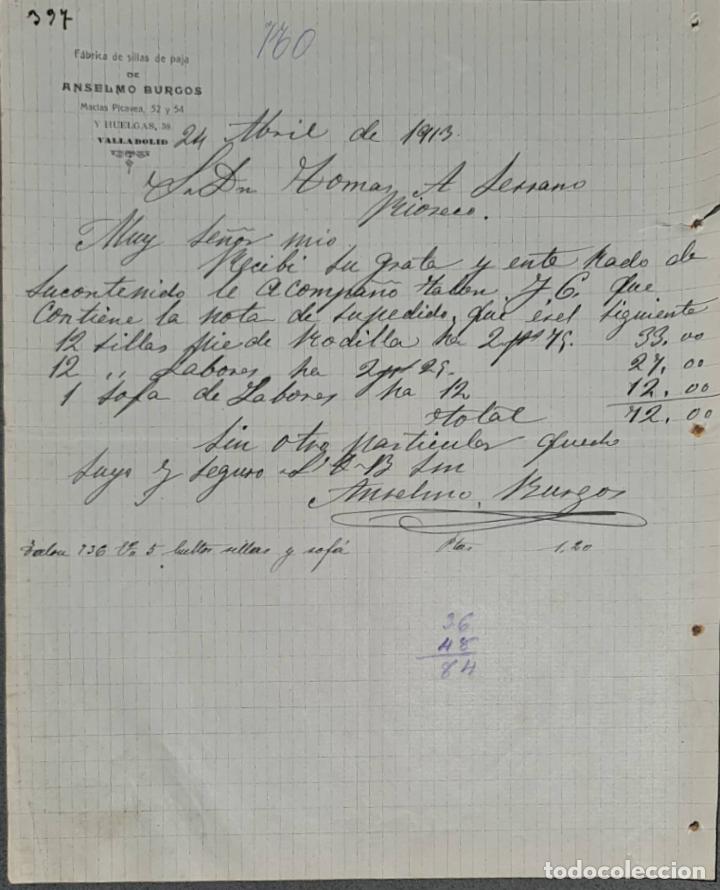 397
160
Fábrica de sillas de paja
DE
ANSELMO BURGOS
Macías Picavea, 52 y 54
Y HUELGAS, 38
VALLADOLID
24 Abril de 1913.
Sr Dn Tomas A Serrano
Rioseco.
Muy Señor mio
Recibi su grata y ente rado de
sucontenido le acompaño talon J. C. que
contiene la nota de supedido, que esel siguiente
12 sillas pie de Rodilla ha 2 pts 75. 33.00
12 " Labores ha 2 pts 25. 27.00
1 sofa de Labores ha 12 12.00
total 72.00
Sin otro particular quedo
suyo y seguro S Q B Sm
Anselmo Burgos
Talon 736 5 bultos sillas y sofá Ptas 1,20
36
48
84
todocoleccion.net